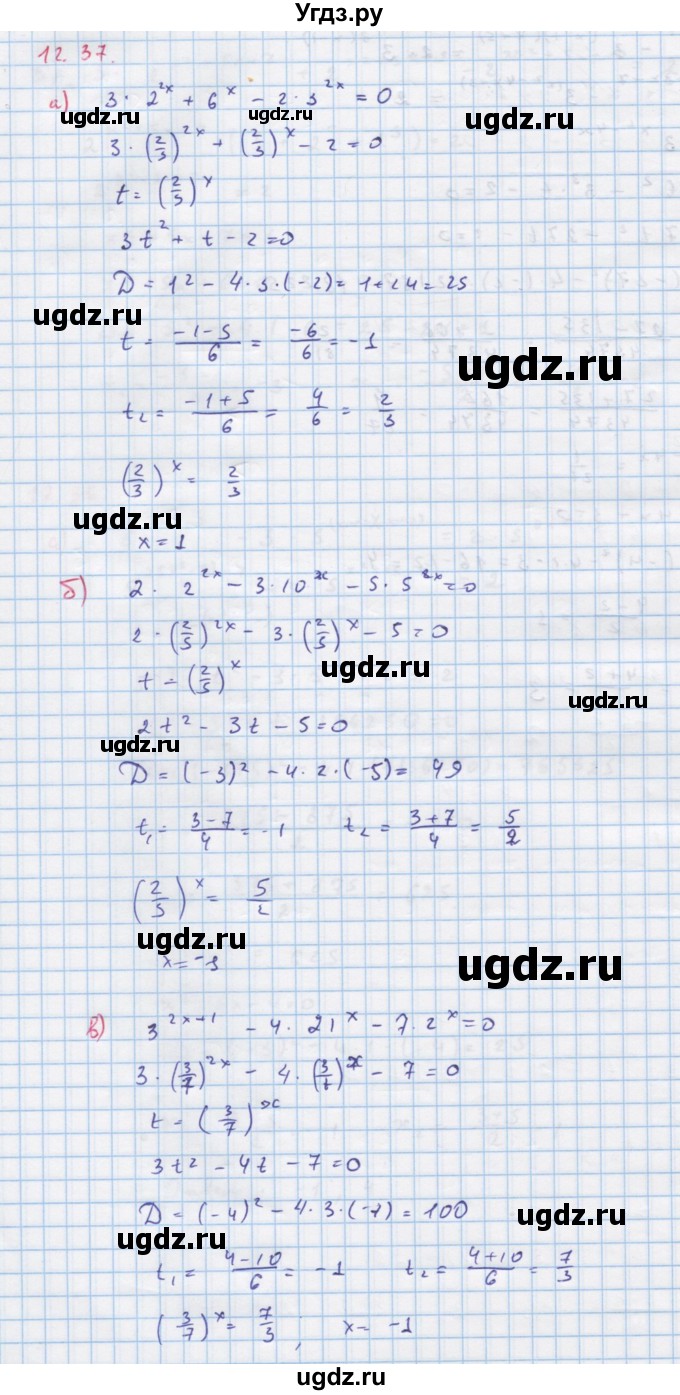 Угдз.ру
12.37.
а) 3 · 2^{2x} + 6^x - 2 · 3^{2x} = 0
ugdz.ru ugdz.ru ugdz.ru
3 · (2/3)^{2x} + (2/3)^x - 2 = 0
t = (2/3)^x
3t² + t - 2 = 0
D = 1² - 4 · 3 · (-2) = 1 + 24 = 25
ugdz.ru
t = (-1-5)/6 = -6/6 = -1
ugdz.ru
t₂ = (-1+5)/6 = 4/6 = 2/3
(2/3)^x = 2/3
ugdz.ru
x = 1
б) 2 · 2^{2x} - 3 · 10^x - 5 · 5^{2x} = 0
2 · (2/5)^{2x} - 3 · (2/5)^x - 5 = 0
ugdz.ru
t = (2/5)^x
ugdz.ru
2t² - 3t - 5 = 0
ugdz.ru
D = (-3)² - 4 · 2 · (-5) = 49
t₁ = (3-7)/4 = -1 t₂ = (3+7)/4 = 5/2
(2/5)^x = 5/2
ugdz.ru
x = -1
ugdz.ru
в) 3^{2x+1} - 4 · 21^x - 7 · 2^x = 0
3 · (3/7)^{2x} - 4 · (3/7)^x - 7 = 0
t = (3/7)^x
3t² - 4t - 7 = 0
D = (-4)² - 4 · 3 · (-7) = 100
ugdz.ru
ugdz.ru
t₁ = (4-10)/6 = -1 t₂ = (4+10)/6 = 7/3
(3/7)^x = 7/3, x = -1
ugdz.ru